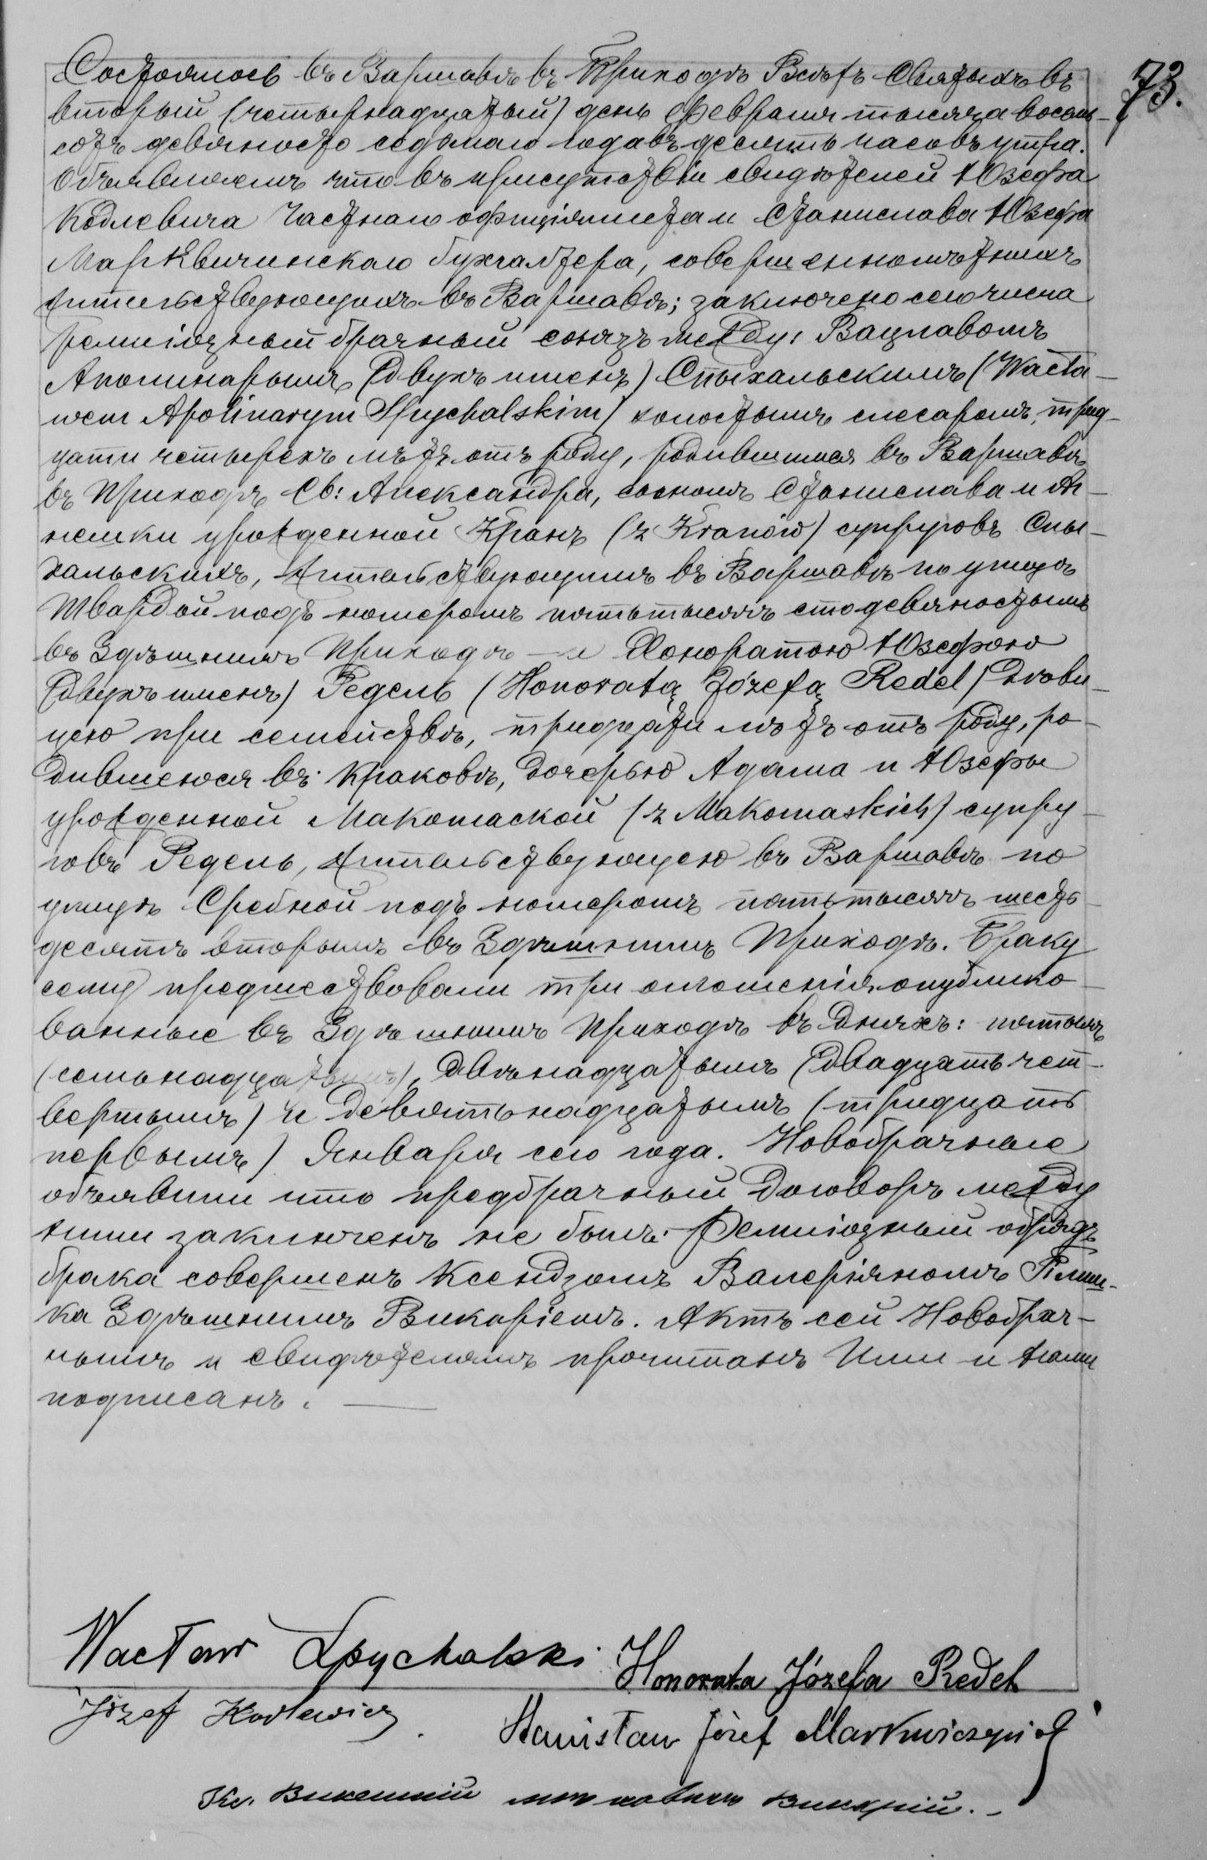 73.
Состоялось въ Варшавѣ въ Приходѣ Всѣхъ Святыхъ въ
второй (четырнадцатый) день Февраля тысяча восемь-
сотъ девяносто седьмаго года въ десять часовъ утра.
Объявляемъ что въ присутствіи свидѣтелей Юзефа
Кодлевича частнаго оффиціялиста и Станислава Юзефа
Марквичинскаго бухгалтера, совершеннолѣтнихъ
жительствующихъ въ Варшавѣ; заключено сего числа
религіозный брачный союзъ между: Вацлавомъ
Аполинарымъ (двухъ именъ) Спыхальскимъ (Wacła-
wem Apolinarym Spychalskim) холостымъ слесаремъ, трид-
цати четырехъ лѣтъ отъ роду, родившимся въ Варшавѣ
въ Приходѣ Св: Александра, сыномъ Станислава и Аг-
нешки урожденной Кранъ (z Kranów) супруговъ Спы-
хальскихъ, жительствующимъ въ Варшавѣ по улицѣ
Твардой подъ номеромъ пять тысячъ сто девяностымъ
въ Здѣшнемъ Приходѣ — и Хоноратою Юзефою
(двухъ именъ) Редель (Honoratą Józefą Redel) дѣви-
цею при семействѣ, тридцати лѣтъ отъ роду, ро-
дившеюся въ Краковѣ, дочерью Адама и Юзефы
урожденной Макомаской (z Makomaskich) супру-
говъ Редель, жительствующею въ Варшавѣ по
улицѣ Сребной подъ номеромъ пять тысячъ шесть-
десятъ вторымъ въ Здѣшнемъ Приходѣ. Браку
сему предшествовали три оглашенія опублико-
ванные въ Здѣшнемъ Приходѣ въ дняхъ: пятымъ
(семьнадцатымъ), двѣнадцатымъ (двадцать чет-
вертымъ) и девятьнадцатымъ (тридцать
первымъ) Января сего года. Новобрачные
объявили что предбрачный договоръ между
ними заключенъ не былъ. Религіозный обрядъ
брака совершенъ Ксендзомъ Валеріяномъ
ка Здѣшнимъ Викаріемъ. Актъ сей Новобрач-
нымъ и свидѣтелямъ прочитанъ Ими и Нами
подписанъ. —
Wacław Spychalski Honorata Józefa Redel
Józef Kodlewicz Stanisław Józef Markwiczyński
Кс. Викентій Викарій. -